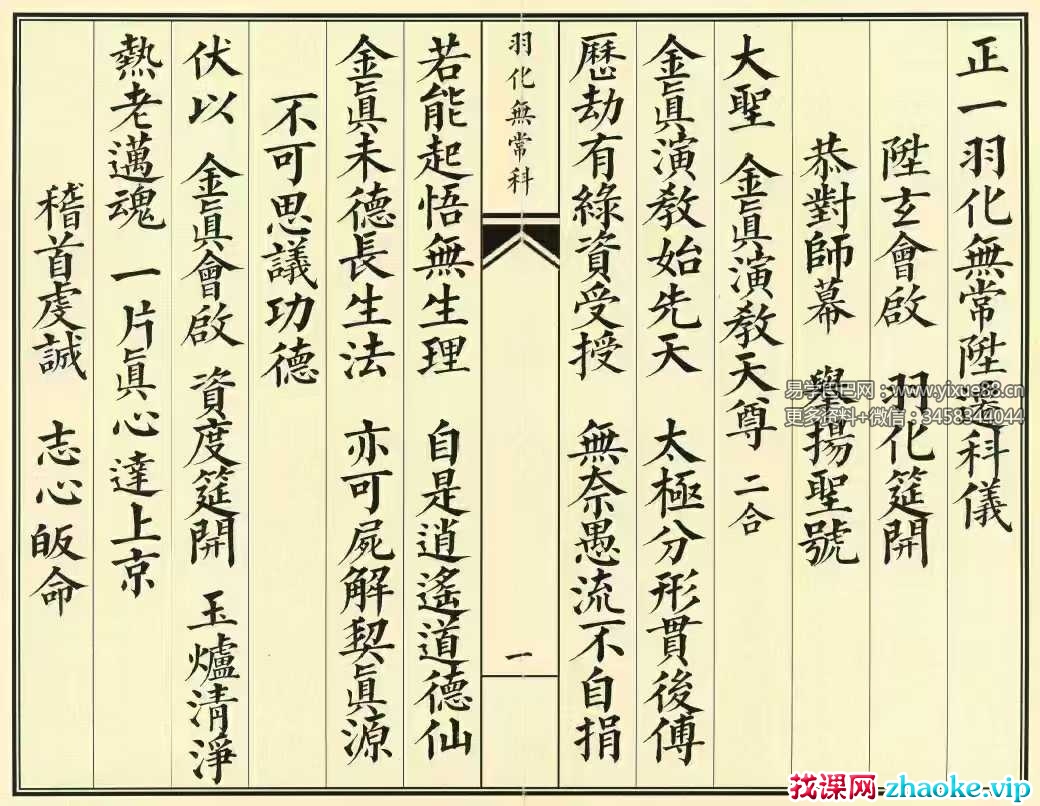 正一羽化無常陞遷科儀
陞玄會啟 羽化筵開
恭對師幕 舉揚聖號
大聖 金眞演教天尊 二合
金眞演教始先天 太極分形貫後傅
歷劫有緣資受授 無奈愚流不自捐
羽化無常科
一
若能起悟無生理 自是逍遙道德仙
金眞未德長生法 亦可屍解契眞源
不可思議功德
伏以 金眞會啟 資度筵開 玉爐清淨
熱老邁魂 一片眞心達上京
稽首虔誠 志心皈命
易学巴巴网:www.yixue88.cn
更多资料+微信:3458344044
找课网-zhaoke.vip